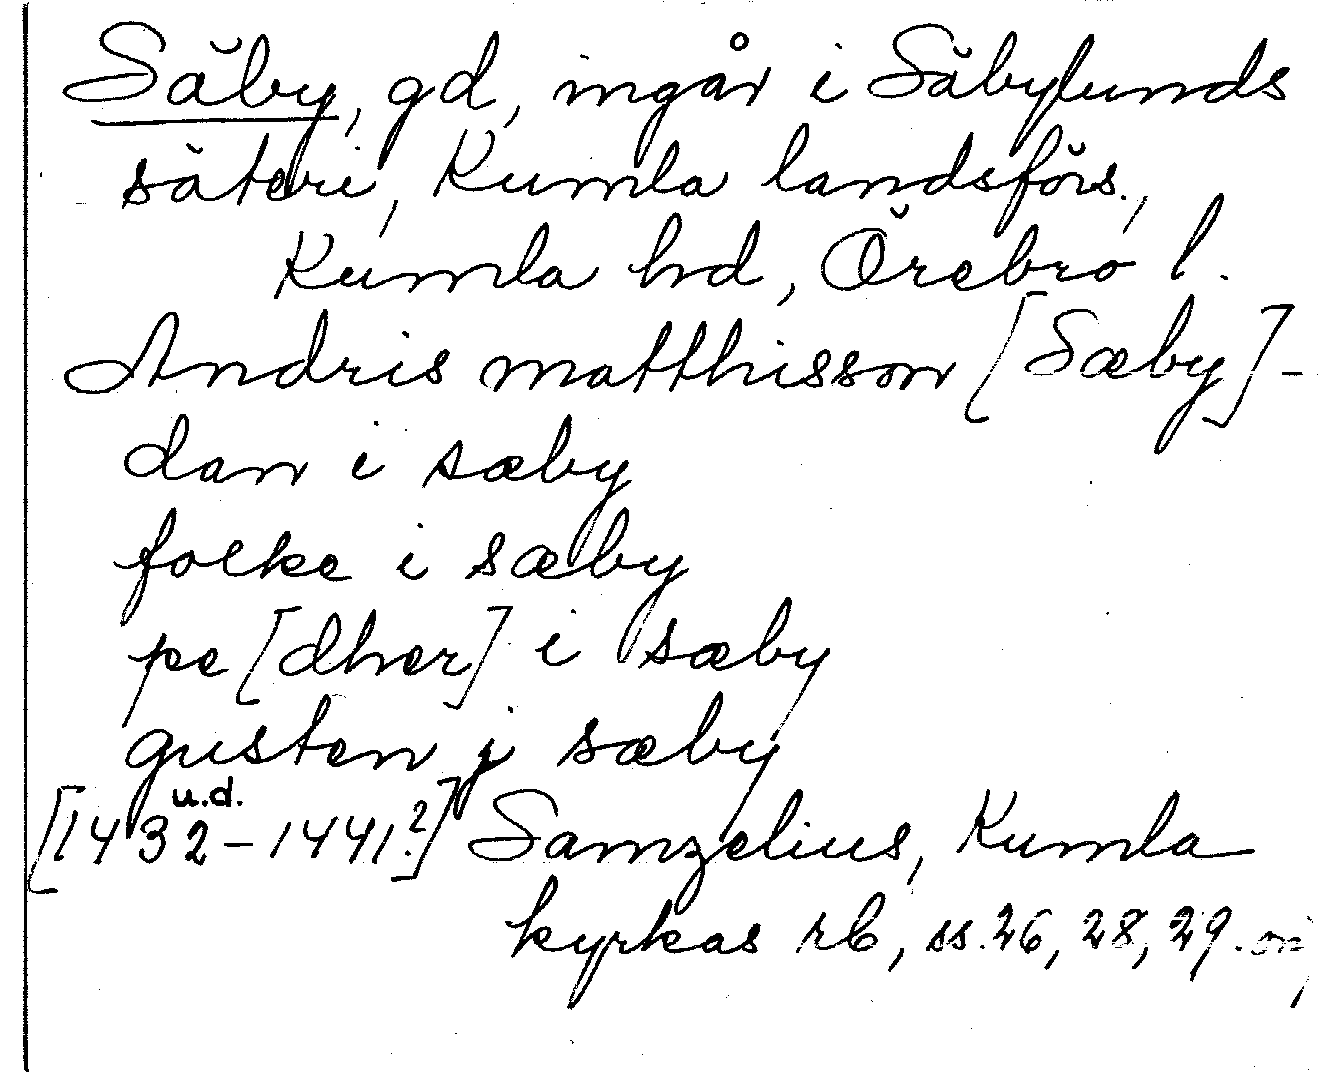 Säby, gd, ingår i Säbylunds
säteri, Kumla landsförs.,
Kumla hd, Örebro l.
Andris matthisson [Sæby] -
dan i sæby
folke i sæby
pe[dher] i sæby
gusten j sæby
u.d.
[1432-1441?] Samzelius, Kumla
kyrkas rb, ss. 26, 28, 29. or.